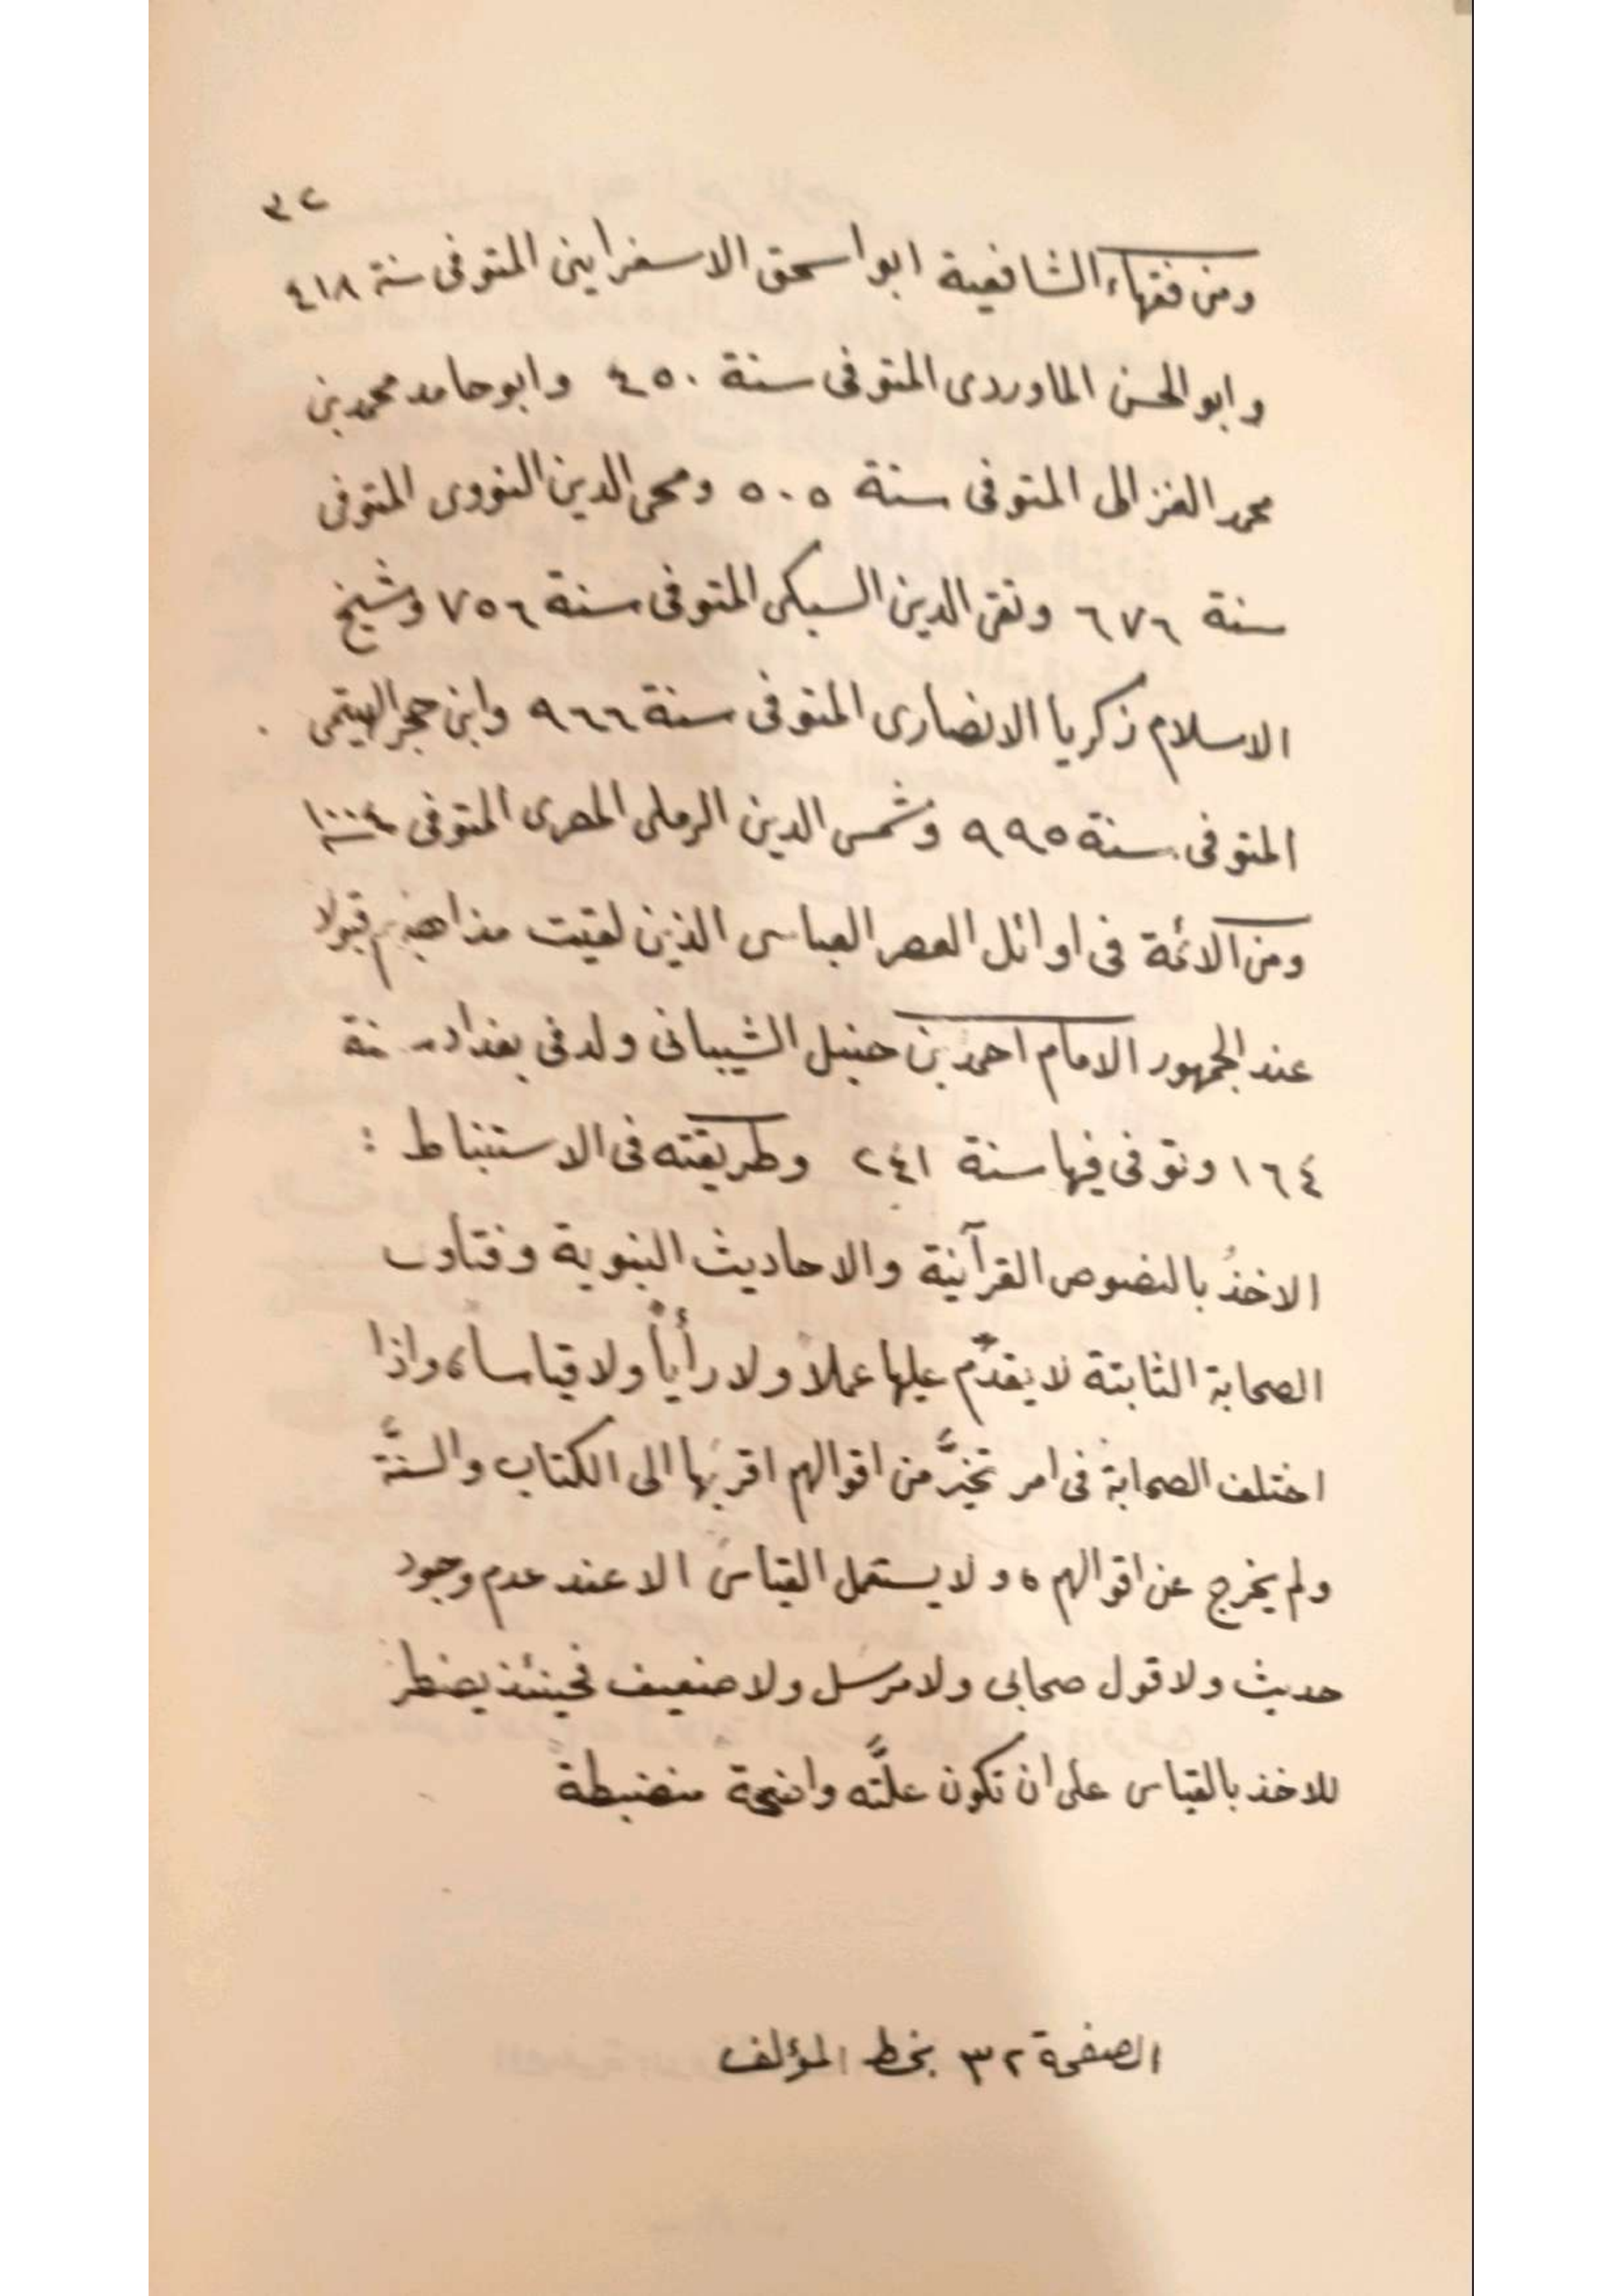 ٣٢
ومن فقهاء الشافعية ابو اسحق الاسفرايني المتوفى سنة ٤١٨
وابو الحسن الماوردى المتوفى سنة ٤٥٠ وابو حامد محمد بن
محمد الغزالى المتوفى سنة ٥٠٥ ومحى الدين النووى المتوفى
سنة ٦٧٦ وتقى الدين السبكى المتوفى سنة ٧٥٦ وشيخ
الاسلام زكريا الانصارى المتوفى سنة ٩٦٦ وابن حجر الهيتمى
المتوفى سنة ٩٩٥ وشمس الدين الرملى المصرى المتوفى سنة ١٠٠٤
ومن الائمة فى اوائل العصر العباسى الذين لقيت مذاهبهم قبولا
عند الجمهور الامام احمد بن حنبل الشيبانى ولد فى بغداد سنة
١٦٤ وتوفى فيها سنة ٢٤١ وطريقته فى الاستنباط :
الاخذُ بالنصوص القرآنية والاحاديث النبوية وفتاوى
الصحابة الثابتة لا يقدّم عليها عملاً ولا رأياً ولا قياساً، واذا
اختلف الصحابة فى امر تخيَّر من اقوالهم اقربَها الى الكتاب والسنَّة
ولم يخرج عن اقوالهم، ولا يستعمل القياس الا عند عدم وجود
حديث ولا قول صحابى ولا مرسل ولا ضعيف فحينئذ يضطر
للاخذ بالقياس على ان تكون علَّته واضحة منضبطة
الصفحة ٣٢ بخط المؤلف